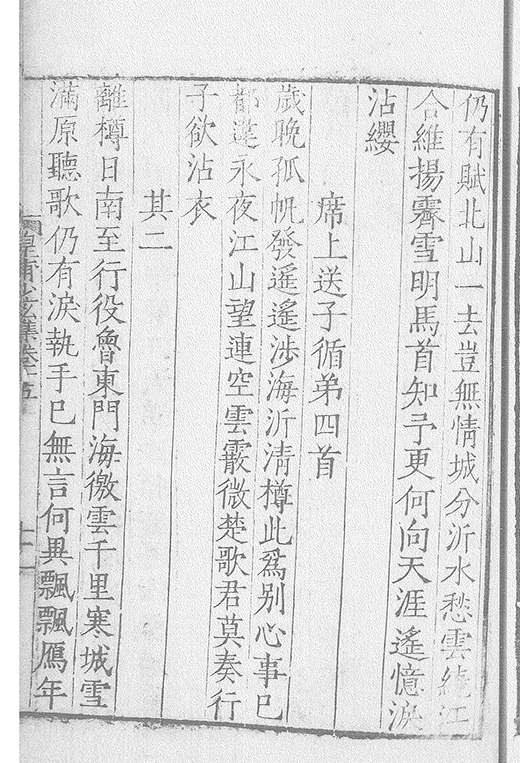 仍有賦北山一去豈無情城分沂水愁雲繞江
合維揚霽雪明馬首知予更何向天涯遙憶淚
沾纓
席上送子循弟四首
歲晚孤帆發遙遙涉海沂清樽此爲別心事已
都違永夜江山望連空雲霰微楚歌君莫奏行
子欲沾衣
其二
離樽日南至行役魯東門海徼雲千里寒城雪
滿原聽歌仍有淚執手已無言何異飄飄鴈年
皇甫少玄集卷十五
十一